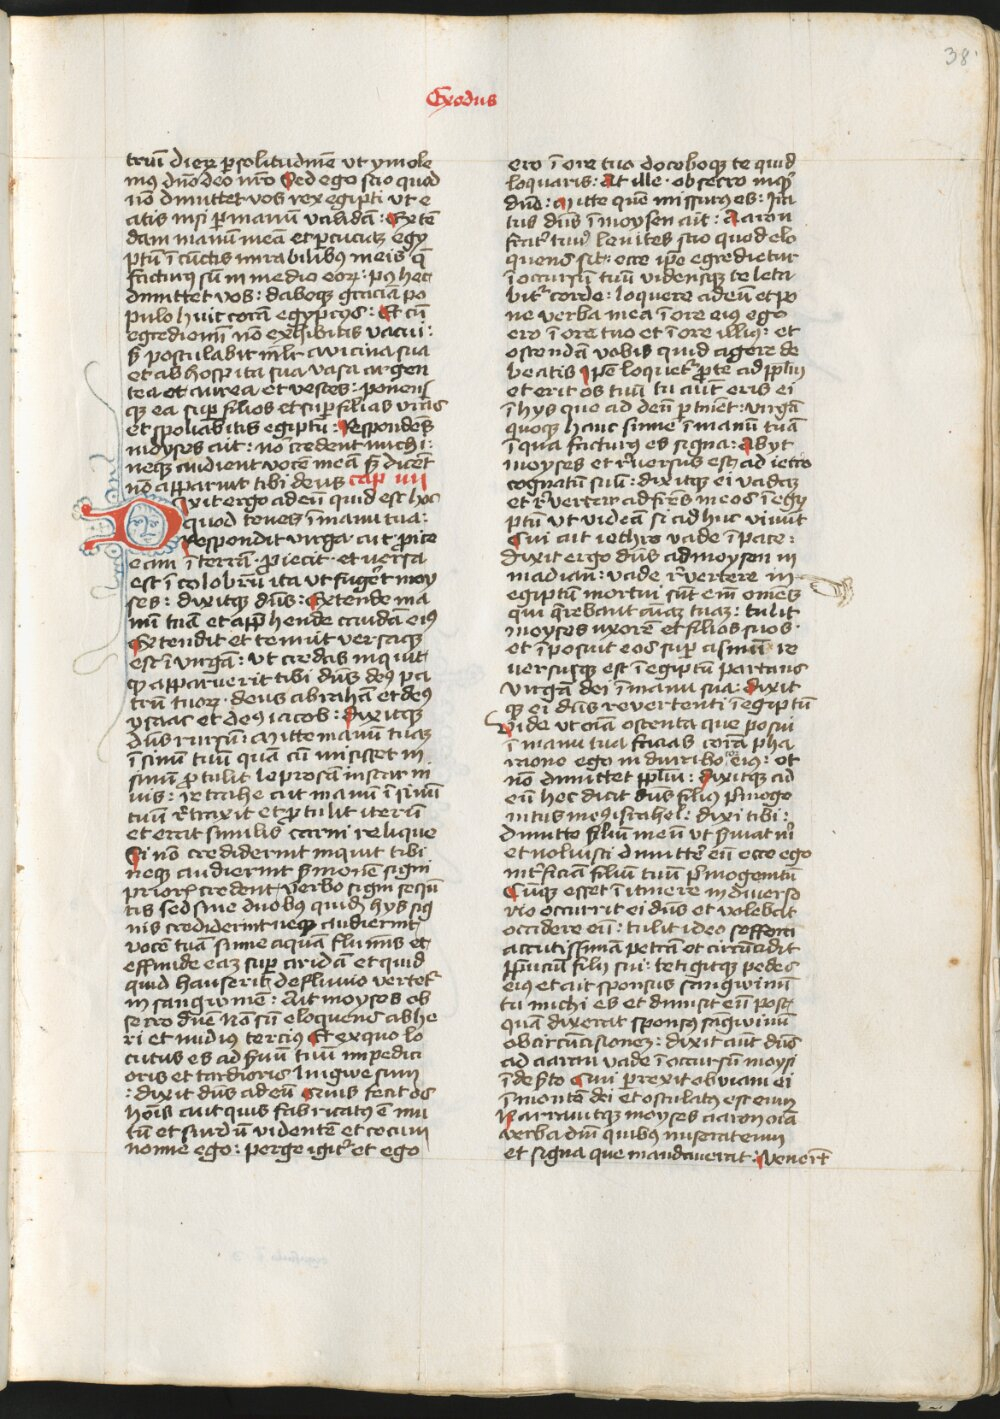 38
Exodus
triū dieꝝ ꝑ solitudinē ut ymole
mꝰ dno deo nr̄o Sed ego scio quod
nō dimittet vos rex egipti ut e
atis nisi ꝑ manū validā: Exten
dam manū meā et ꝑcuciā egy
ptū ī cūctis mirabilibus meis q̄
facturus sū in medio eoꝝ: pꝰ hec
dimittet vos: daboqꝫ graciā po
pulo huic corā egypcijs: Et cū
egrediemī nō exhibitis vacui:
s̄ postulabit mlr̄ a vicina sua
et ab hospita sua vasa argen
tea et aurea et vestes: ponetiſ
qꝫ ea suꝑ filios et suꝑ filias vr̄as
et spoliabitis egiptū: Respondens
moyses ait: nō credent michi:
neqꝫ audient vocē meā s̄ dicent
nō apparuit tibi deus cap iiii
Dixit ergo ad eū quid est hoc
quod tenes ī manu tua:
Respondit virga ait ꝓice
eam ī terrā· ꝓiecit· et versa
est ī colobrū ita ut fugēt moy
ses: dixitqꝫ dn̄s: Extende ma
nū tuā et app̄hende caudā eiꝰ
Extendit et tenuit versaqꝫ
est ī virgā: ut credas inquit
qꝫ apparuerit tibi dn̄s deꝰ pa
trū tuoꝝ· deus abrahā et deꝰ
ysaac et deꝰ iacob: Dixitqꝫ
dn̄s rursū: Mitte manū tuaꝫ
ī sinū tuū quā cū misisset in
sinū ꝓtulit leprosā instar ni
uis: retrahe ait manū ī sinū
tuū rētraxit et ꝓtulit iterū
et erat similis carni relique
Si nō crediderint inquit tibi
neqꝫ audierint s̄monē signi
prioris credent verbo signi sequē
tis sed sine duobus quidē hys sig
nis crediderint neqꝫ audierint
vocē tuā sume aquā fluminis et
effunde eaꝫ suꝑ aridā et quid
quid hauseris de fluuio vertetᷣ
in sangwinē: Ait moyses ob
secro dn̄e nō sū eloquens ab he
ri et nudius tercius Et ex quo lo
cutus es ad s̄uū tuū impedici
oris et tardioris lingwe sum
: dixit dn̄s ad eū Quis fecit os
hois̄ aut quis fabricatꝰ ē mu
tū et surdū videntē et cecum
nonne ego: perge igitᷣ et ego
ero ī ore tuo doceboqꝫ te quid
loquaris: At ille· obsecro inqͥt
dn̄e: Mitte quē missurus es: Ira
tus dn̄s ī moysen ait: Aaron
fratᷣ tuus levites scio quod elo
quens sit: ecce ipe egredietur
ī occursū tuū vidensqꝫ te leta
bitᷣ corde: loquere ad eū et po
ne verba mea ī ore eius ego
ero ī ore tuo et ī ore illius: et
ostendā vobis quid agere de
beatis ipe loquetᷣ ꝓ te ad pplm̄
et erit os tuū tu aūt eris ei
ī hys que ad deū ꝑtinēt: virgā
quoqꝫ hanc sume ī manū tuā
ī qua facturus es signa: Abyt
moyses et rēversus est ad ietro
cognatū suū: dixitqꝫ ei vadaꝫ
et rēvertar ad fr̄es meos ī egy
ptū ut videā si adhuc vivūt
Cui ait iethro vade ī pace:
dixit ergo dn̄s ad moysen in
madian: vade rēvertere in
egiptū mortui sūt em̄ omēs
qui q̄rebant aīaꝫ tuaꝫ: tulit
moyses uxorē et filios suos·
et īposuit eos suꝑ asinū re
versusqꝫ est ī egiptū portans
virgā dei ī manu sua: Dixit
qꝫ ei dn̄s revertenti ī egiptū
Vide ut oīa ostenta que posui
ī manu tua facias corā pha
raone ego indurabo cor eius: et
nō dimittet pplm̄: Dixitqꝫ ad
eū hec dicit dn̄s filiꝰ p̄moge
nitus meus israhel: dixi tibi:
dimitte filiū meū ut s̄viat m̄
et noluisti dimittē eū ecce ego
intᷣficiā filiū tuū p̄mogenitū
Cūqꝫ esset ī itinere in diverso
rio occurrit ei dn̄s et volebat
occidere eū: tulit ideo seffora
accutissimā petrā et circūcidit
ꝑpuciū filij sui: tetigitqꝫ pedes
eiꝰ et ait sponsus sangwinū
tu michi es et dimisit eū postqꝫ
quā dixerat sponsꝰ sāgwinū
ob circūcisionez: dixit aūt dn̄s
ad aaron vade ī occursū moysi
ī deserto Cui ꝑrexit obviam ei
ī montē dei et osculatꝰ est eum
Narravitqꝫ moyses aaron oīa
verba dn̄i quibus miserat eum
et signa que mandauerat: Venerūt